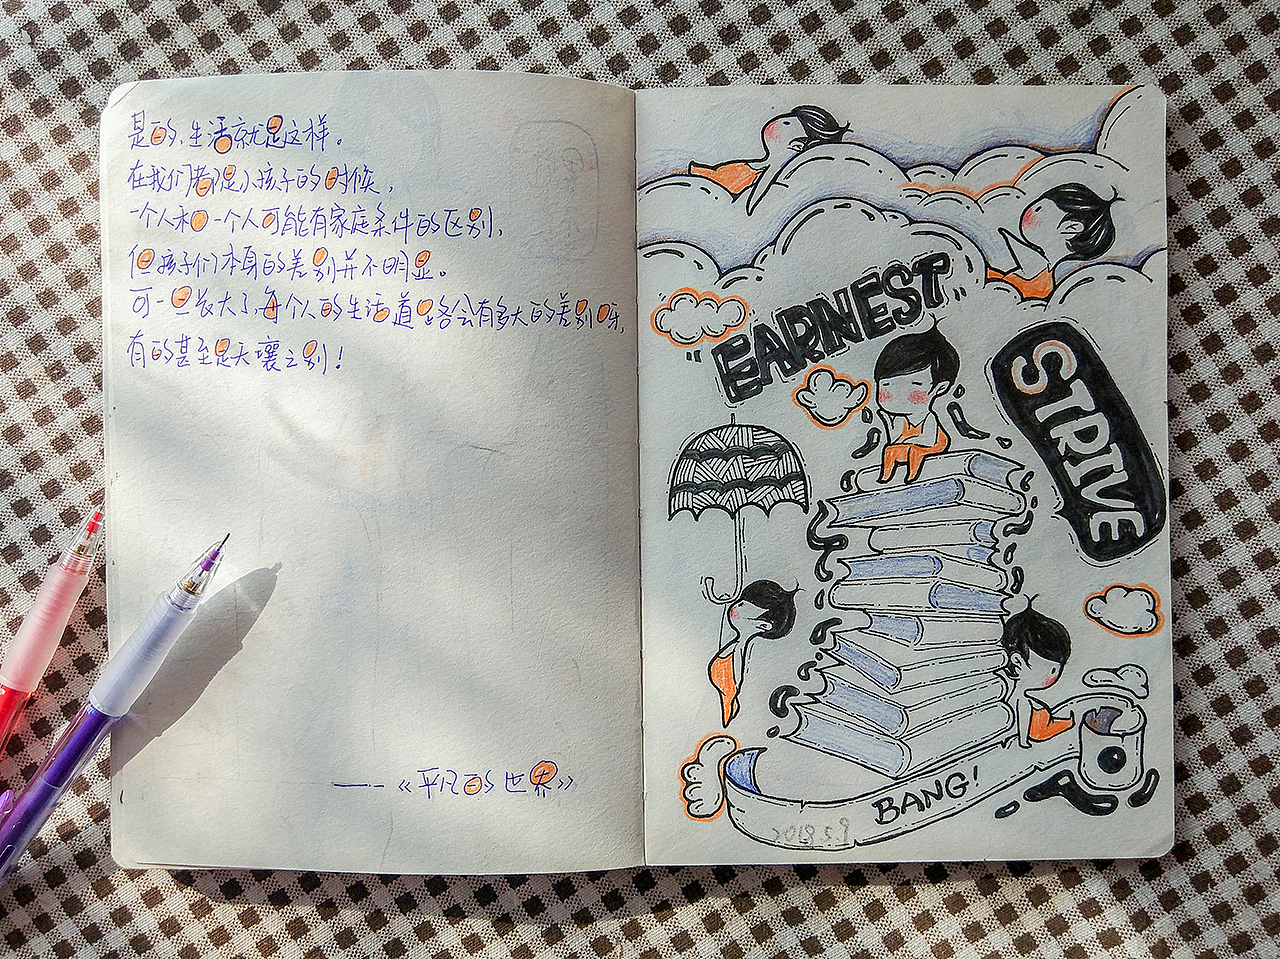 是的,生活就是这样。
在我们都是小孩子的时候,
一个人和一个人可能有家庭条件的区别,
但孩子们本身的差别并不明显。
可一旦长大了,每个人的生活道路会有多大的差别呀,
有的甚至是天壤之别!
——《平凡的世界》
EARNEST
STRIVE
BANG!
2018.5.9